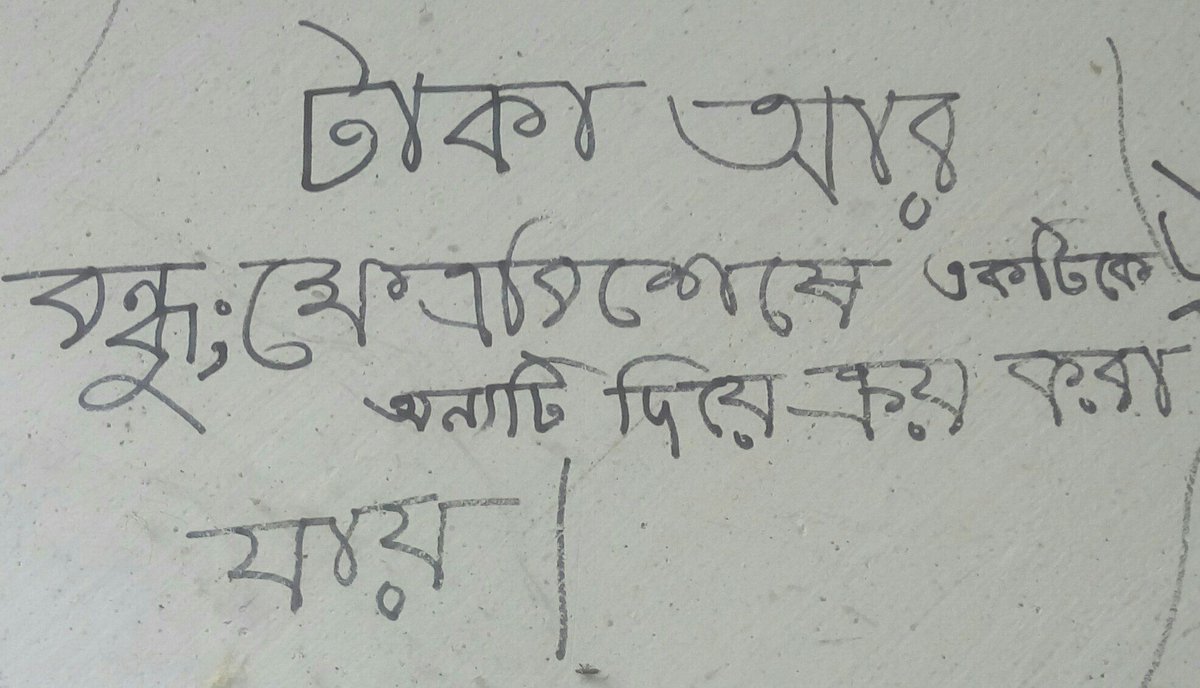 টাকা আর
বন্ধু; ক্ষেত্রবিশেষে একটিকে
অন্যটি দিয়ে ক্রয় করা
যায়।